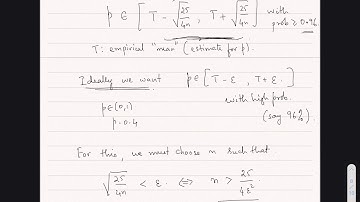 p ∈ [ T - √(25/4n) , T + √(25/4n) ] with prob ≥ 0.96
T: empirical "mean" (estimate for p).
Ideally we want p ∈ [ T - ε , T + ε. ]
with high prob. (say 96%).
p ∈ (0,1)
p = 0.4
For this, we must choose n such that
√(25/4n) < ε ⇔ n > 25/4ε²